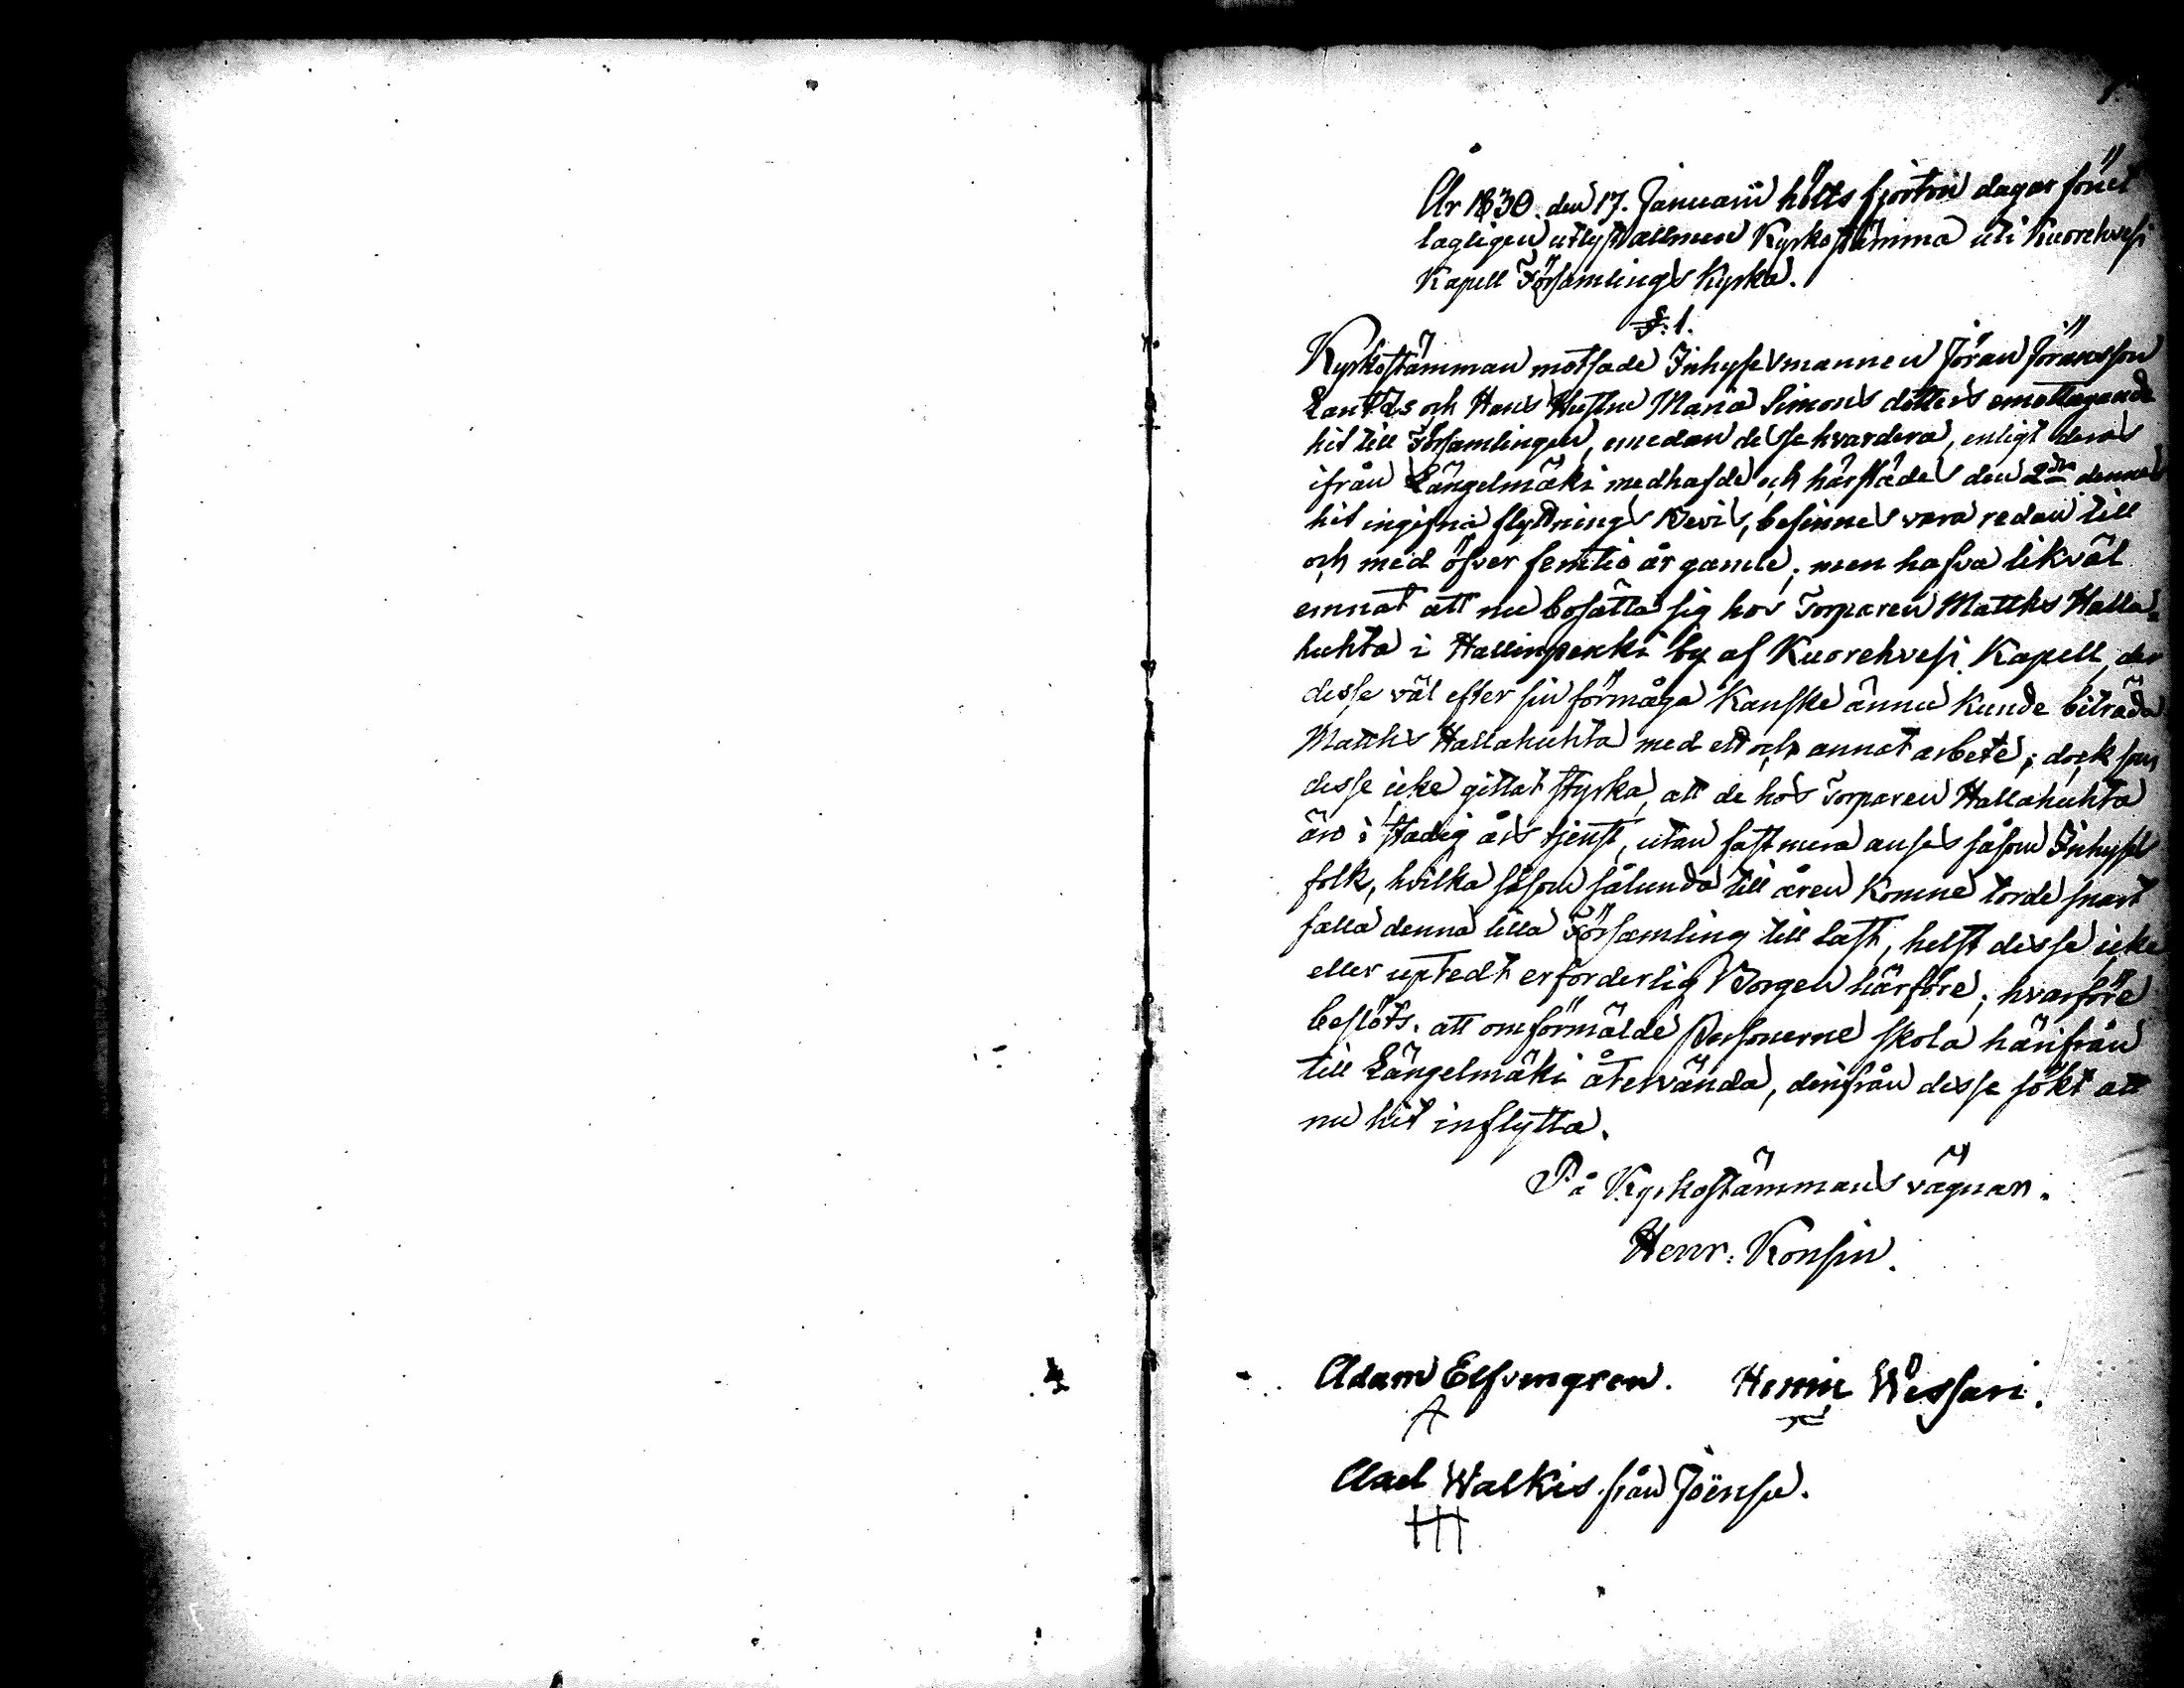 År 1830. den 17. Januarii hölts fjorton dagar förut
lagligen utlyst allmen Kyrkostämma uti Kuorehvesi
Kapell Församlings Kyrka.
§. 1.
Kyrkostämman motsade Inhysesmannen Jöran Jöransson
och Hans Hustru Maria Simons dotters emottagande
hit till Församlingen, emedan desse hvardera, enligt deras
ifrån Längelmäki medhafde och härstädes den 2dra dennes
hit ingifna flyttnings Bevis, befinnes vara redan till
och med öfver femtio år gamle; men hafva likväl
emnat att nu bosätta sig hos Torparen Matths Halla-
huhta i Hallinpenki by af Kuorehvesi Kapell, der
desse väl efter sin förmåga Kanske ännu Kunde biträda
Matths Hallahuhta med ett och annat arbete; dock
desse icke gittat styrka, att de hos Torparen Hallahuhta
äro i stadig års tjenst, utan fastmera anses såsom Inhyses
folk, hvilka såsom sålunda till åren Komne torde snart
falla denna lilla Församling till last, helst desse icke
eller uptedt erforderlig Borgen härföre; hvarföre
beslöts. att omförmälde Personerne skola härifrån
till Längelmäki återvända, derifrån desse sökt att
nu hit inflytta.
På Kyrkostämmans vägnar.
Henr: Konsin.
Adam Elfvengren. Henric Wessari.
A
Axel Walkis från Jöensu.